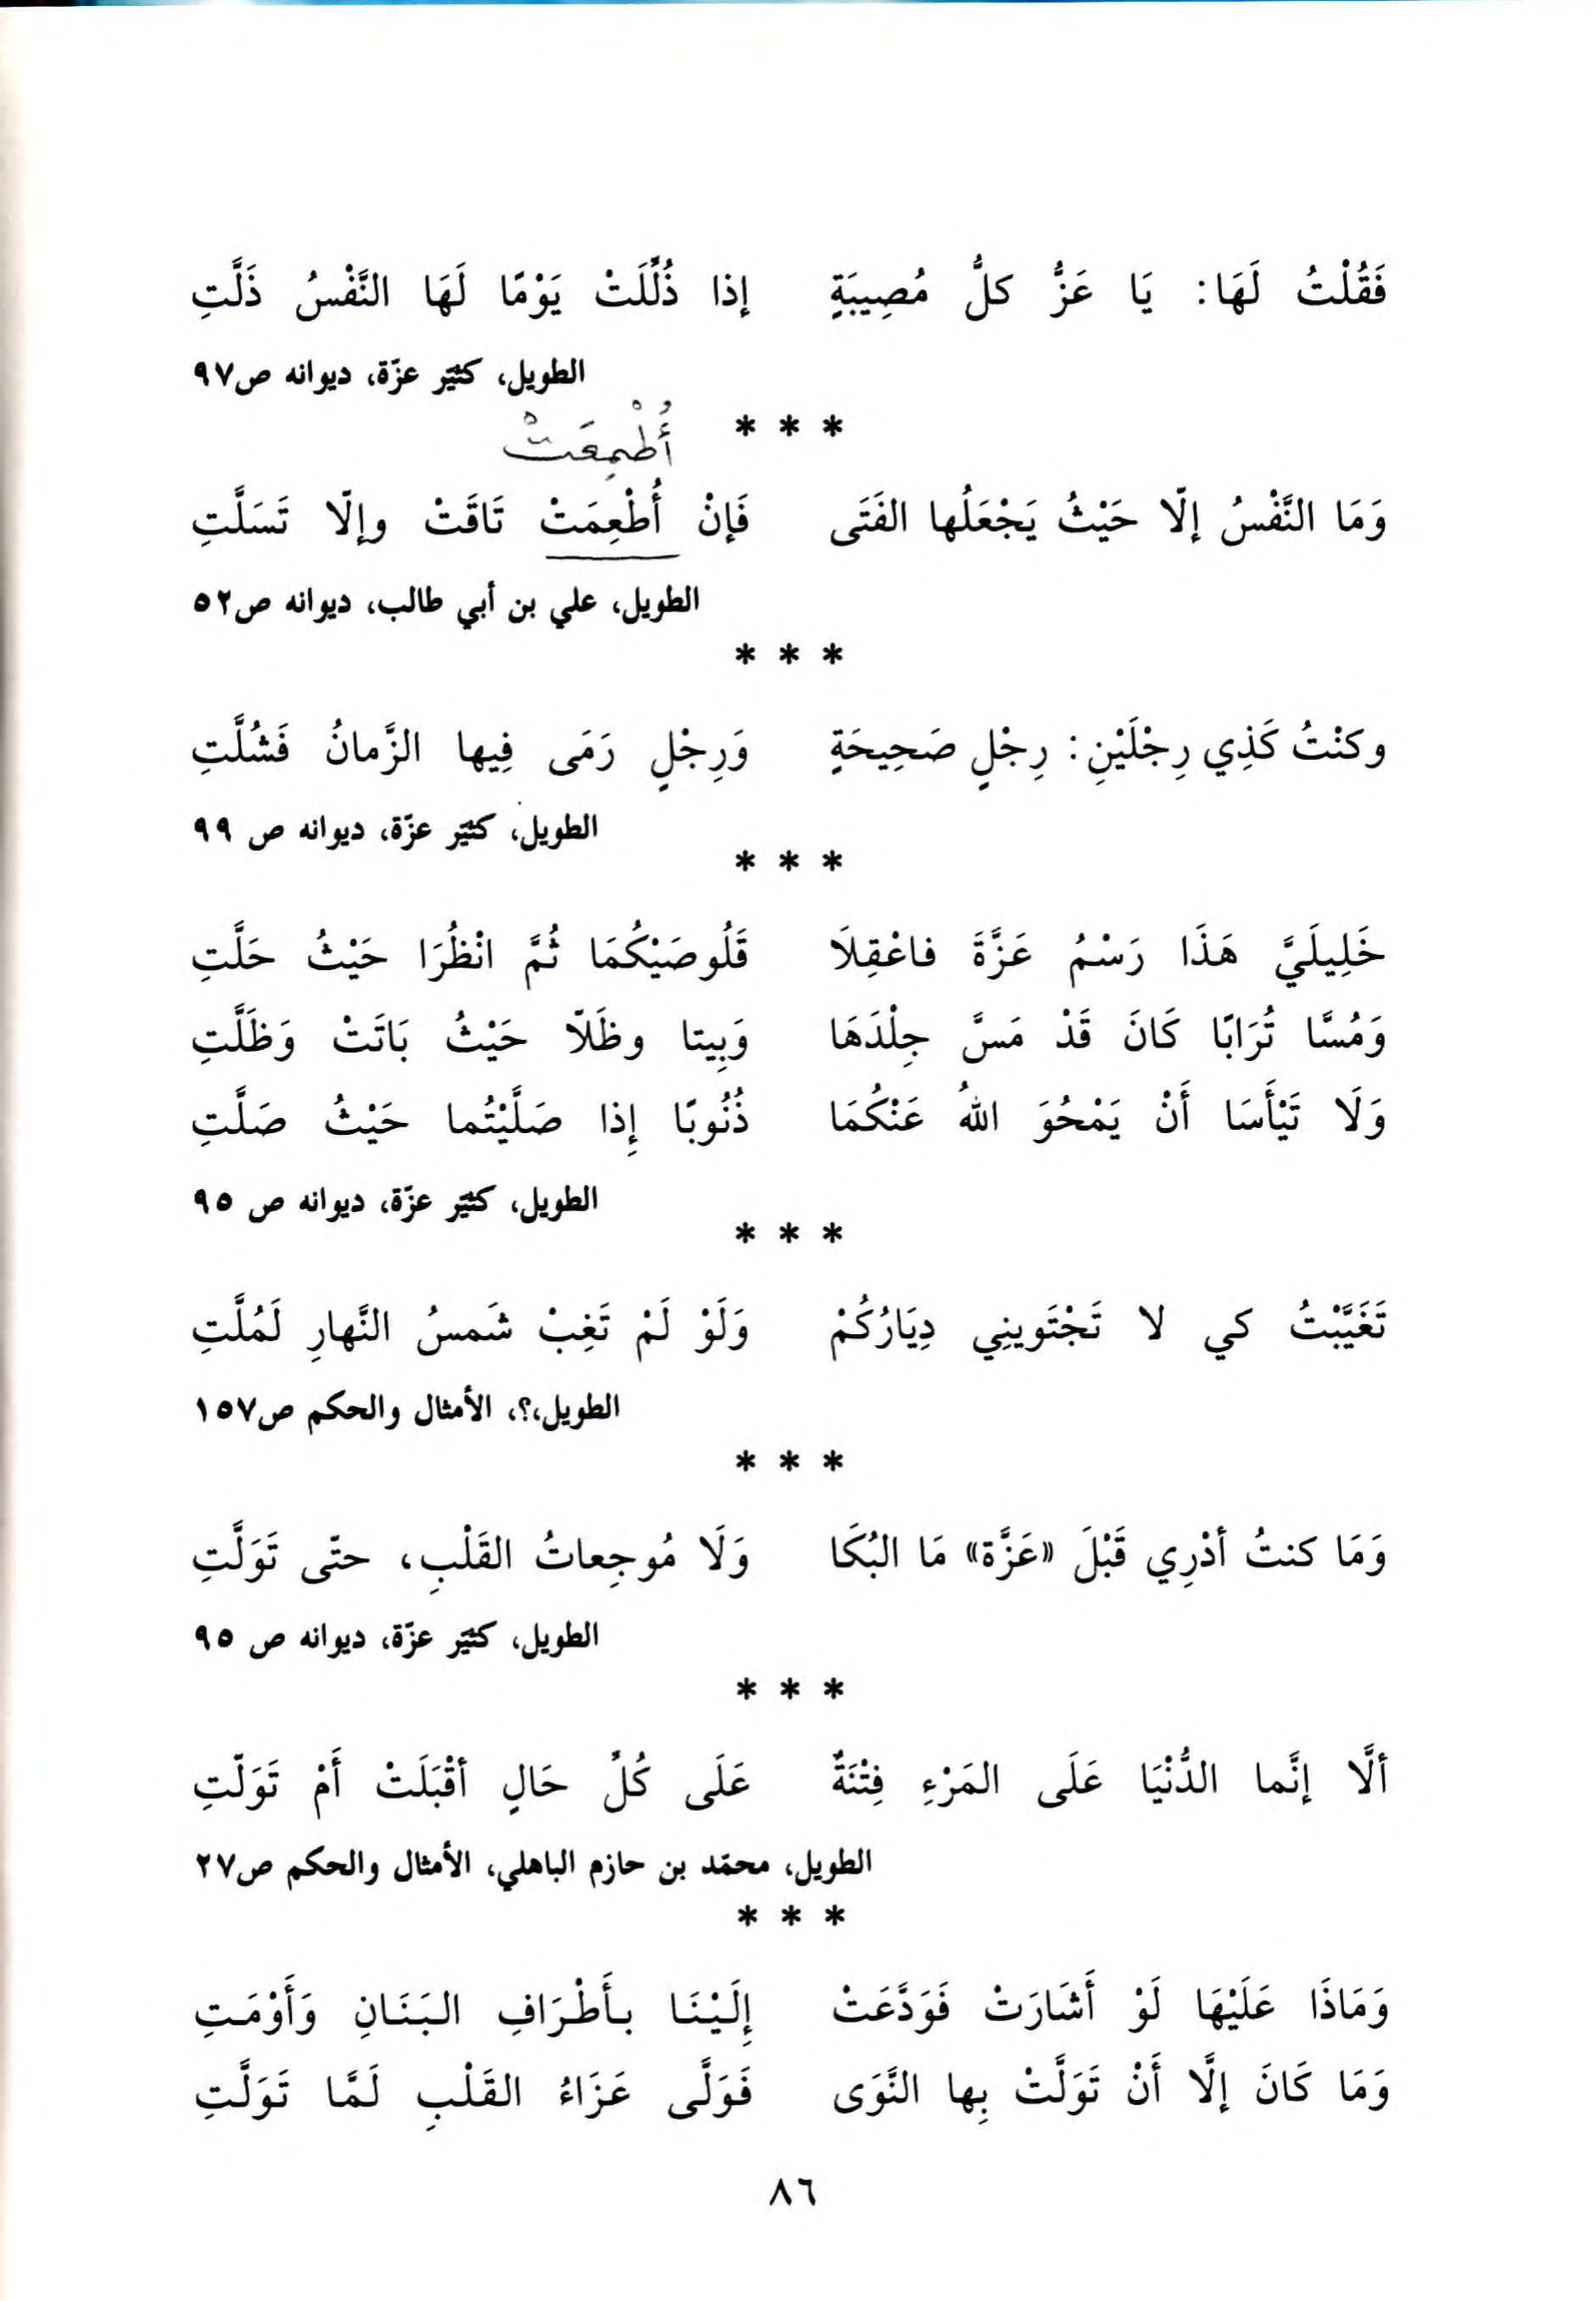 فَقُلْتُ لَهَا: يَا عَزُّ كلُّ مُصِيبَةٍ إذا ذُلِّلَتْ يَوْمًا لَهَا النَّفْسُ ذَلَّتِ
الطويل، كثيّر عزّة، ديوانه ص٩٧
* * *
أُطْمِعَتْ
وَمَا النَّفْسُ إلّا حَيْثُ يَجْعَلُها الفَتَى فَإنْ أُطْعِمَتْ تَاقَتْ وإلّا تَسَلَّتِ
الطويل، علي بن أبي طالب، ديوانه ص٥٢
* * *
وكنْتُ كَذِي رِجْلَيْنِ: رِجْلٍ صَحِيحَةٍ وَرِجْلٍ رَمَى فِيها الزَّمانُ فَشُلَّتِ
الطويل، كثيّر عزّة، ديوانه ص ٩٩
* * *
خَلِيلَيَّ هَذَا رَسْمُ عَزَّةَ فاعْقِلَا قَلُوصَيْكُمَا ثُمَّ انْظُرَا حَيْثُ حَلَّتِ
وَمُسَّا تُرَابًا كَانَ قَدْ مَسَّ جِلْدَهَا وَبِيتا وظَلّا حَيْثُ بَاتَتْ وَظَلَّتِ
وَلَا تَيْأَسَا أَنْ يَمْحُوَ اللهُ عَنْكُمَا ذُنُوبًا إِذا صَلَّيْتُما حَيْثُ صَلَّتِ
الطويل، كثيّر عزّة، ديوانه ص ٩٥
* * *
تَغَيَّبْتُ كي لا تَجْتَوينِي دِيَارُكُمْ وَلَوْ لَمْ تَغِبْ شَمسُ النَّهارِ لَمُلَّتِ
الطويل،؟، الأمثال والحكم ص١٥٧
* * *
وَمَا كنتُ أدْرِي قَبْلَ «عَزَّة» مَا البُكَا وَلَا مُوجِعاتُ القَلْبِ، حتّى تَوَلَّتِ
الطويل، كثيّر عزّة، ديوانه ص ٩٥
* * *
ألَّا إنَّما الدُّنْيَا عَلَى المَرْءِ فِتْنَةٌ عَلَى كُلِّ حَالٍ أقْبَلَتْ أَمْ تَوَلّتِ
الطويل، محمّد بن حازم الباهلي، الأمثال والحكم ص٢٧
* * *
وَمَاذَا عَلَيْهَا لَوْ أَشَارَتْ فَوَدَّعَتْ إِلَيْنَا بأَطْرَافِ البَنَانِ وَأَوْمَتِ
وَمَا كَانَ إلَّا أَنْ تَوَلَّتْ بِها النَّوَى فَوَلَّى عَزَاءُ القَلْبِ لَمَّا تَوَلَّتِ
٨٦